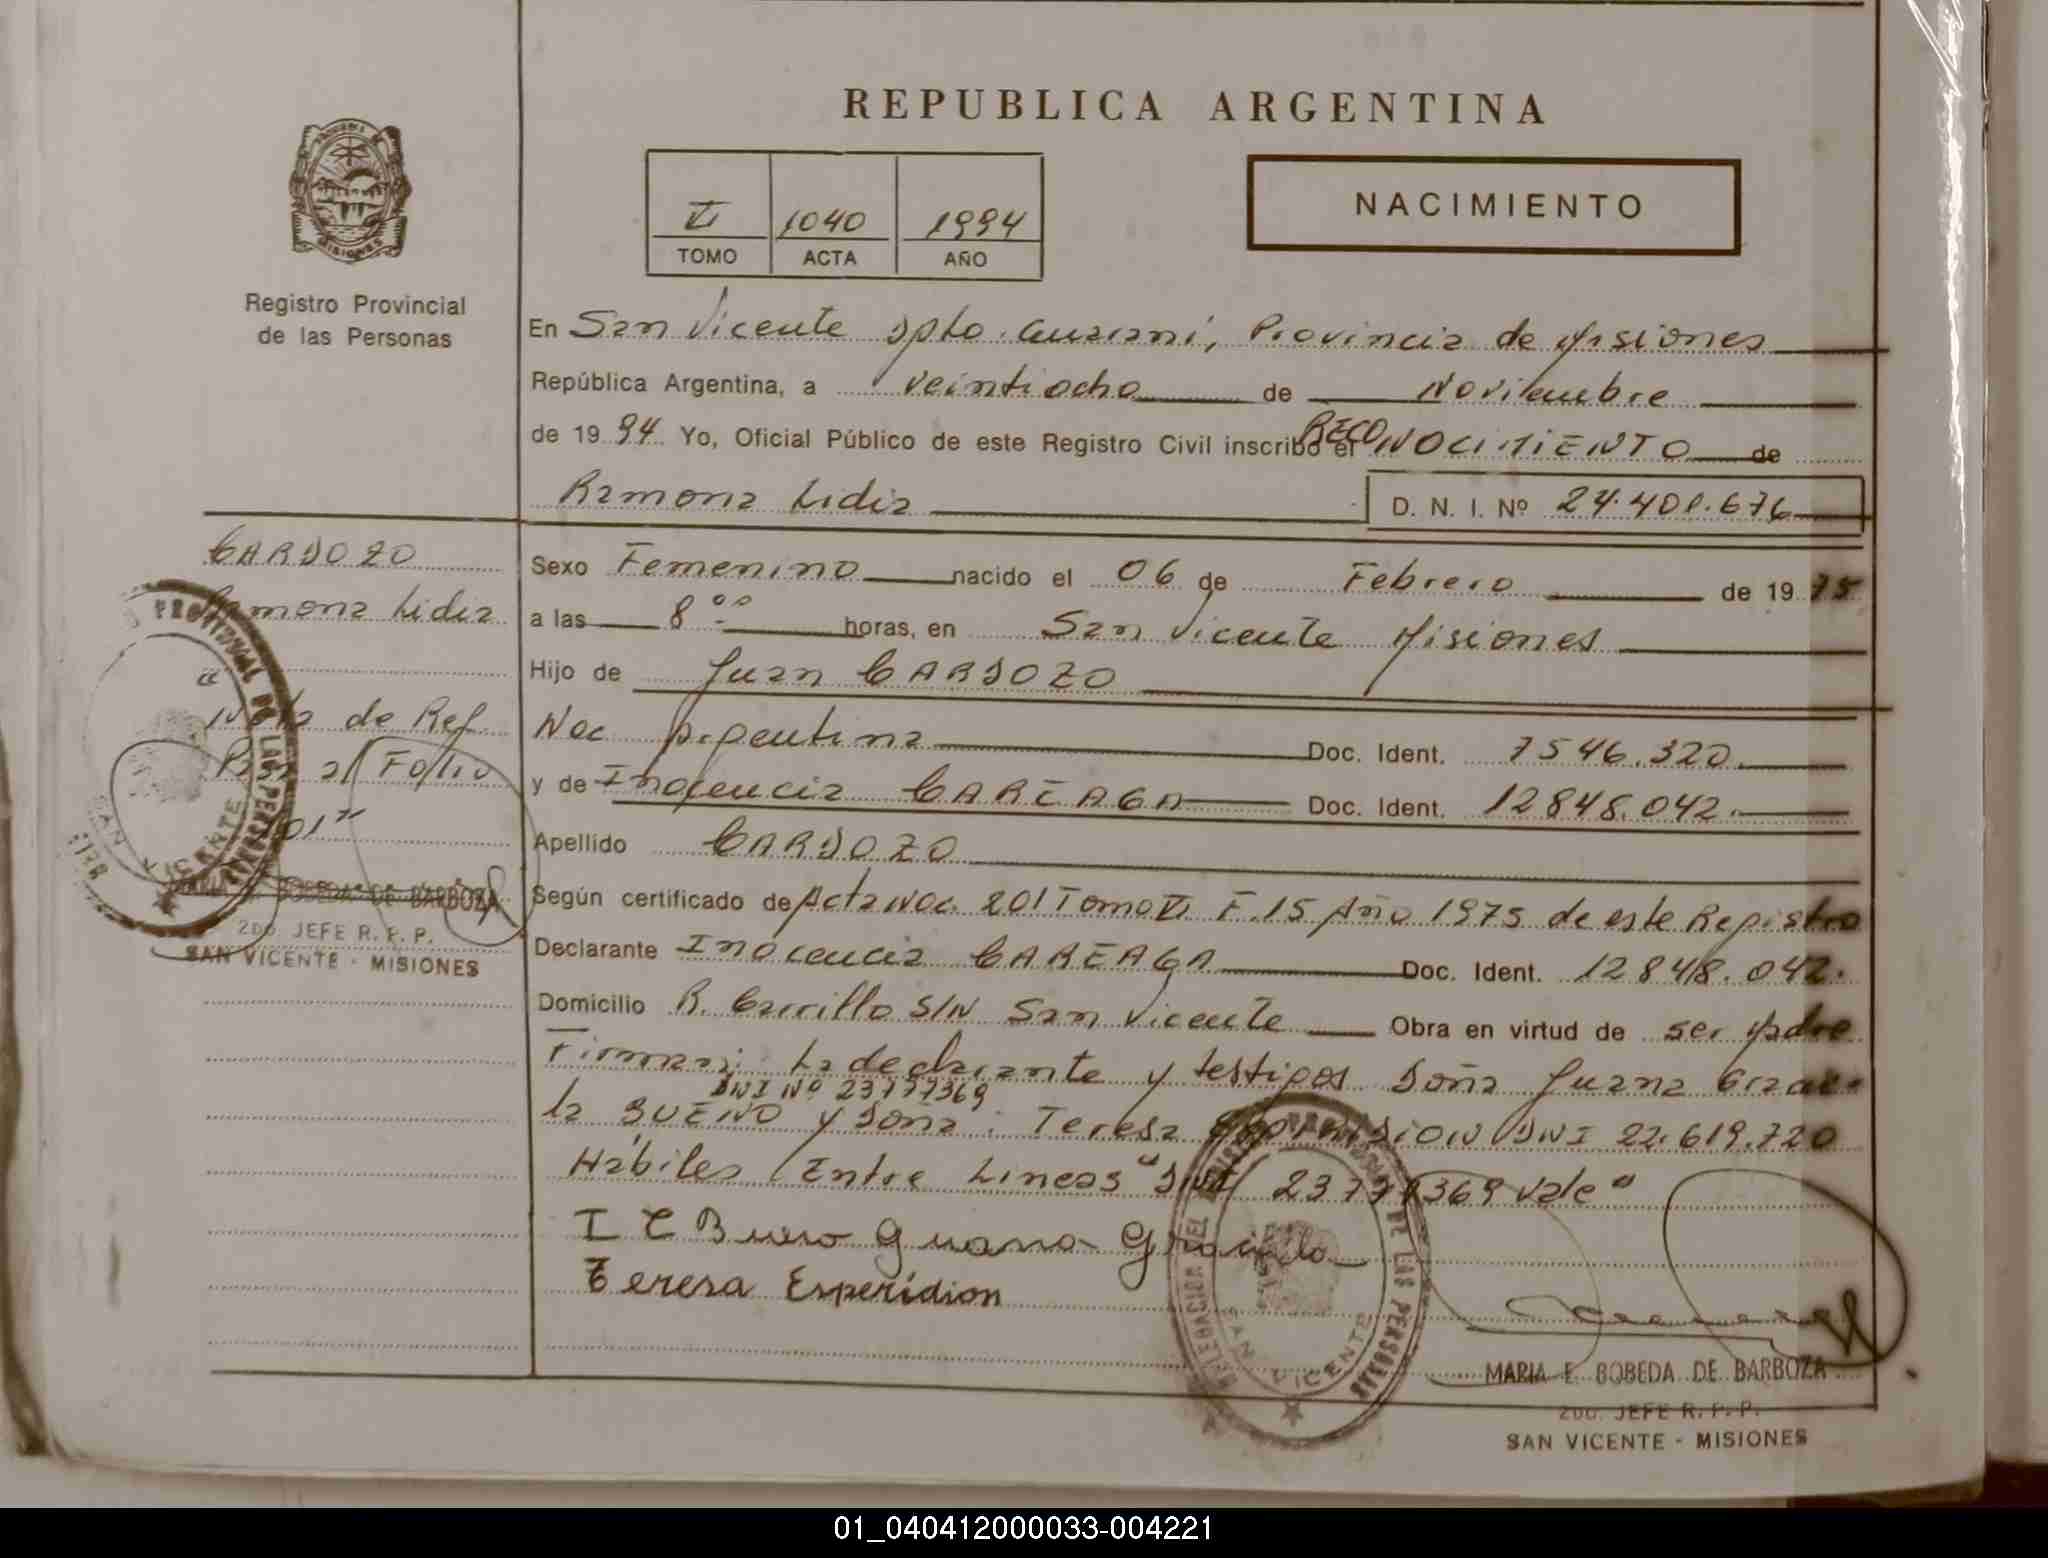 REPUBLICA ARGENTINA
NACIMIENTO
VI 1040 1994
TOMO ACTA AÑO
Registro Provincial
de las Personas
En San Vicente Dpto. Guaraní, Provincia de Misiones
República Argentina, a veintiocho de Noviembre
de 1994 Yo, Oficial Público de este Registro Civil inscribo el RECONOCIMIENTO de
Ramona Lidia D. N. I. Nº 24.401.676
Sexo Femenino nacido el 06 de Febrero de 1975
a las 8 00 horas, en San Vicente Misiones
Hijo de Juan CARDOZO
Nac Argentina Doc. Ident. 7546.320.
y de Inocencia CAREAGA Doc. Ident. 12848.042.
Apellido CARDOZO
Según certificado de Acta Nac. 201 Tomo VI F. 15 Año 1975 de este Registro
Declarante Inocencia CAREAGA Doc. Ident. 12848.042.
Domicilio R. Carrillo S/N San Vicente Obra en virtud de ser Madre
Firman: La declarante y testigos Doña Juana Graciela
DNI Nº 23777369
BUENO y Doña: Teresa DNI 22.619.720
Hábiles Entre Lineas "DNI 23777369 Vale"
I C Bueno Juana Graciela
Teresa Esperidion
CARDOZO
Ramona Lidia
"
Nota de Ref.
al Folio
01"
MARIA E. BOBEDA DE BARBOZA
2DO. JEFE R. P. P.
SAN VICENTE - MISIONES
PROVINCIAL DE LAS PERSONAS
SAN VICENTE
DELEGACION DEL REGISTRO PROVINCIAL DE LAS PERSONAS
SAN VICENTE
MARIA E. BOBEDA DE BARBOZA
2DO. JEFE R. P. P.
SAN VICENTE - MISIONES
01_040412000033-004221